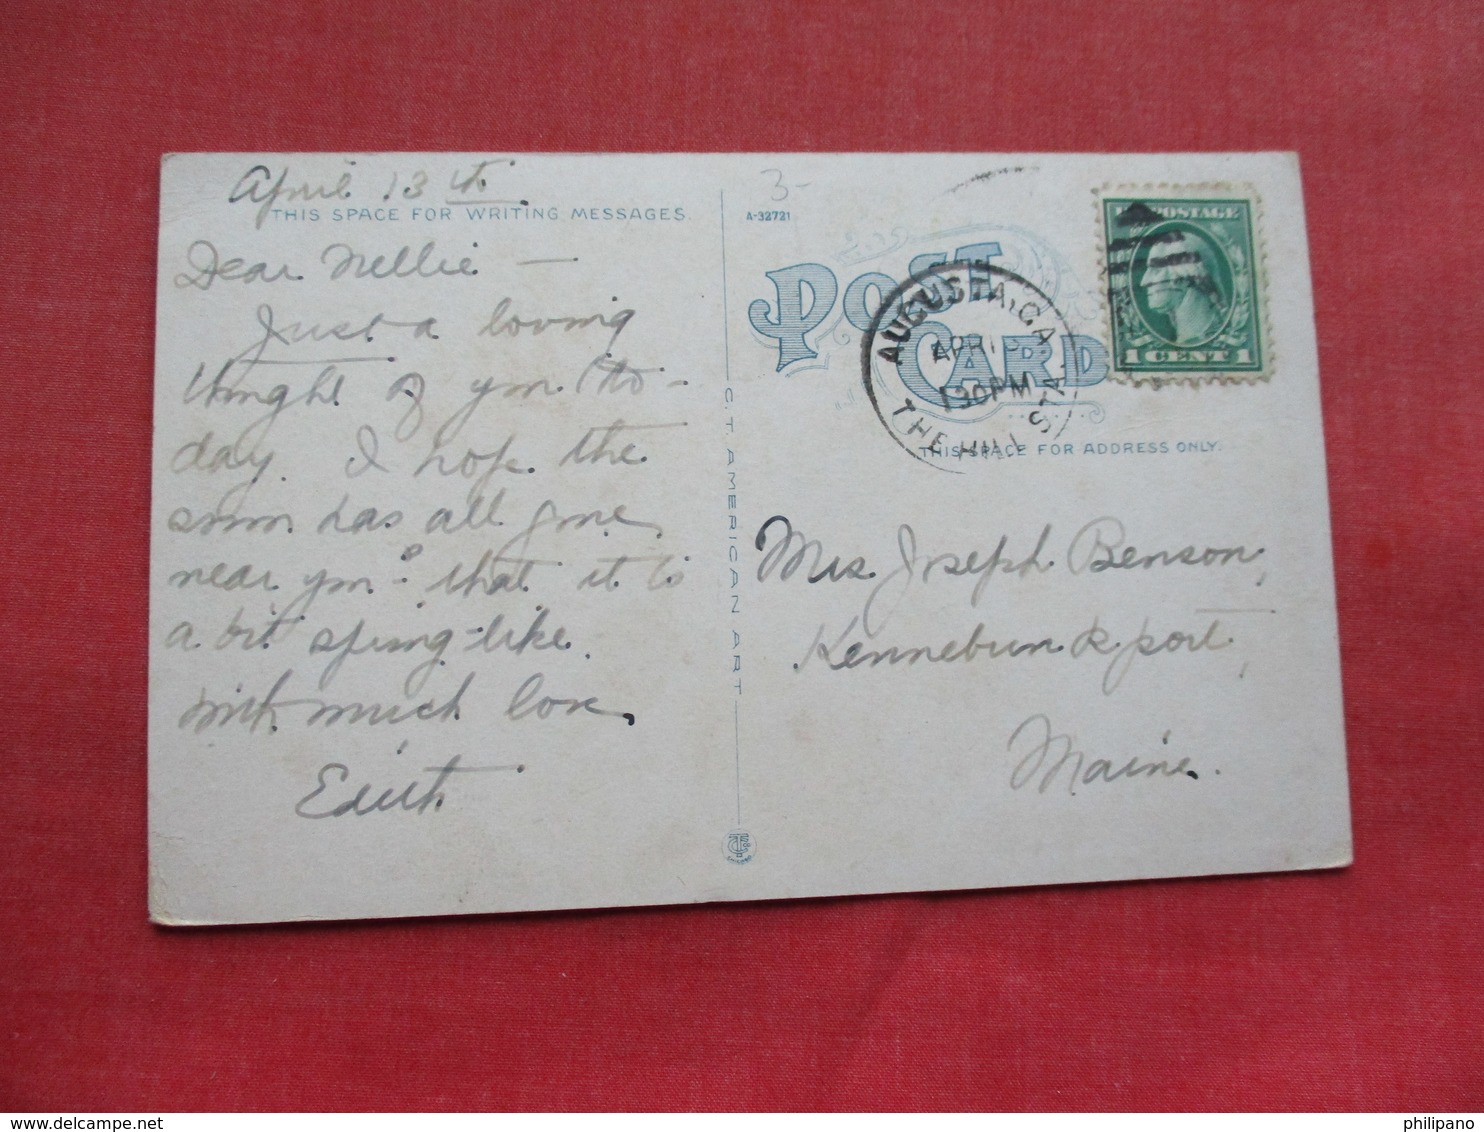 April 13th
THIS SPACE FOR WRITING MESSAGES.
Dear Nellie —
Just a loving
thought of you to-
day. I hope the
snow has all gone
near you & that it is
a bit spring-like.
With much love,
Edith
C. T. AMERICAN ART
3-
A-32721
POST CARD
AUGUSTA, GA.
APR 13
130PM
THE HILL STA.
U.S. POSTAGE
1 CENT 1
THIS SPACE FOR ADDRESS ONLY.
Mrs Joseph Benson,
Kennebunkport,
Maine.
philipano